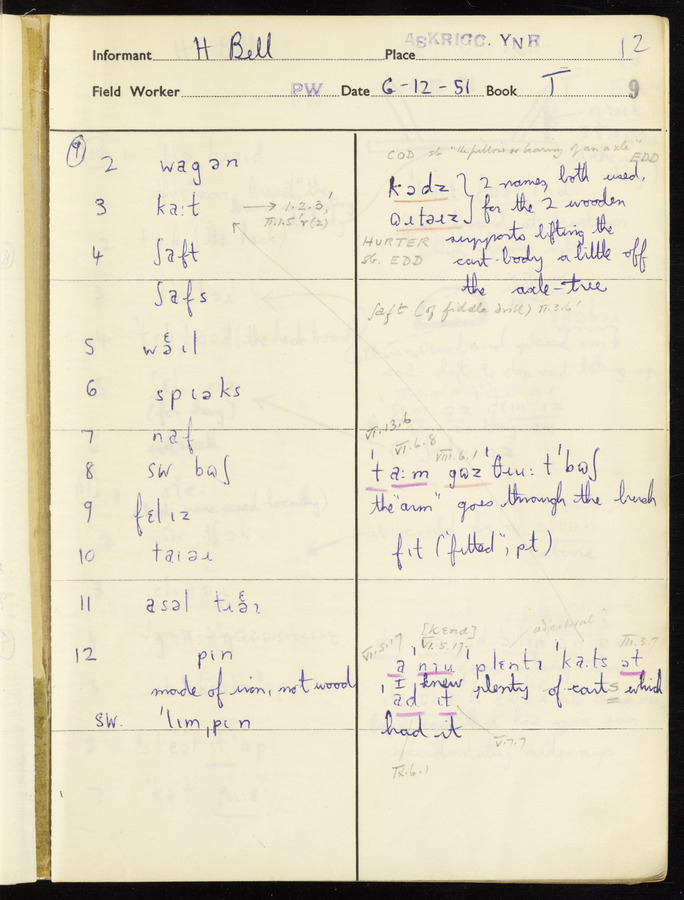 Informant H Bell Place ASKRIGG. YNR 12
Field Worker PW Date 6-12-51 Book I 9
9
2 wagən
3 ka:t → 1.2.3,
4 ʃaft
ʃafs
5
6 spɪəks
7 naf
8 sw. bʊʃ
9 fɛlɪz
10
11 asəl
12 pɪn
made of iron, not wood
sw. ˈlɪmˌpɪn
COD sb "the pillow or bearing of an axle" EDD
2 names, both used,
for the 2 wooden
HURTER supports lifting the
sb. EDD cart-body a little off
the axle-tree
ʃaft (of fiddle drill) II.3.6'
VI.13.6
VI.6.8
VIII.6.1
the "arm" goes through the bush
fɪt ("fitted", pt)
adjectival
VI.5.17 [kɛnd] III.3.7
V.5.17
plɛntɪ ˈka:ts ət
I knew plenty of carts which
ad ɪt
had it
V.7.7
IX.6.1